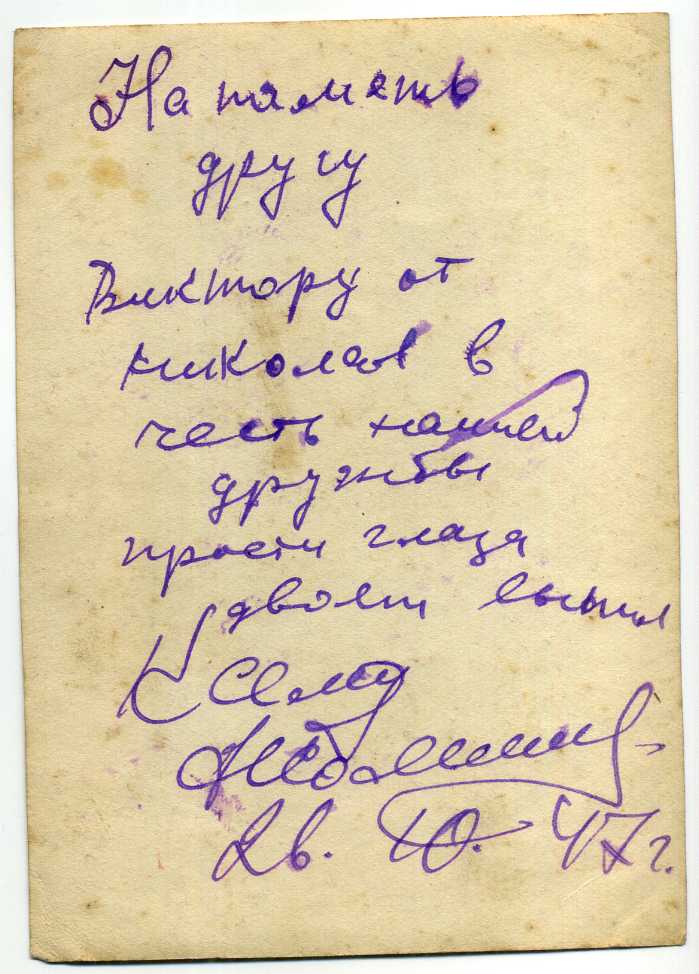 На память
другу
Виктору от
николая в
честь нашей
дружбы
прости глаза
двоят выпил
26. 10. 47 г.